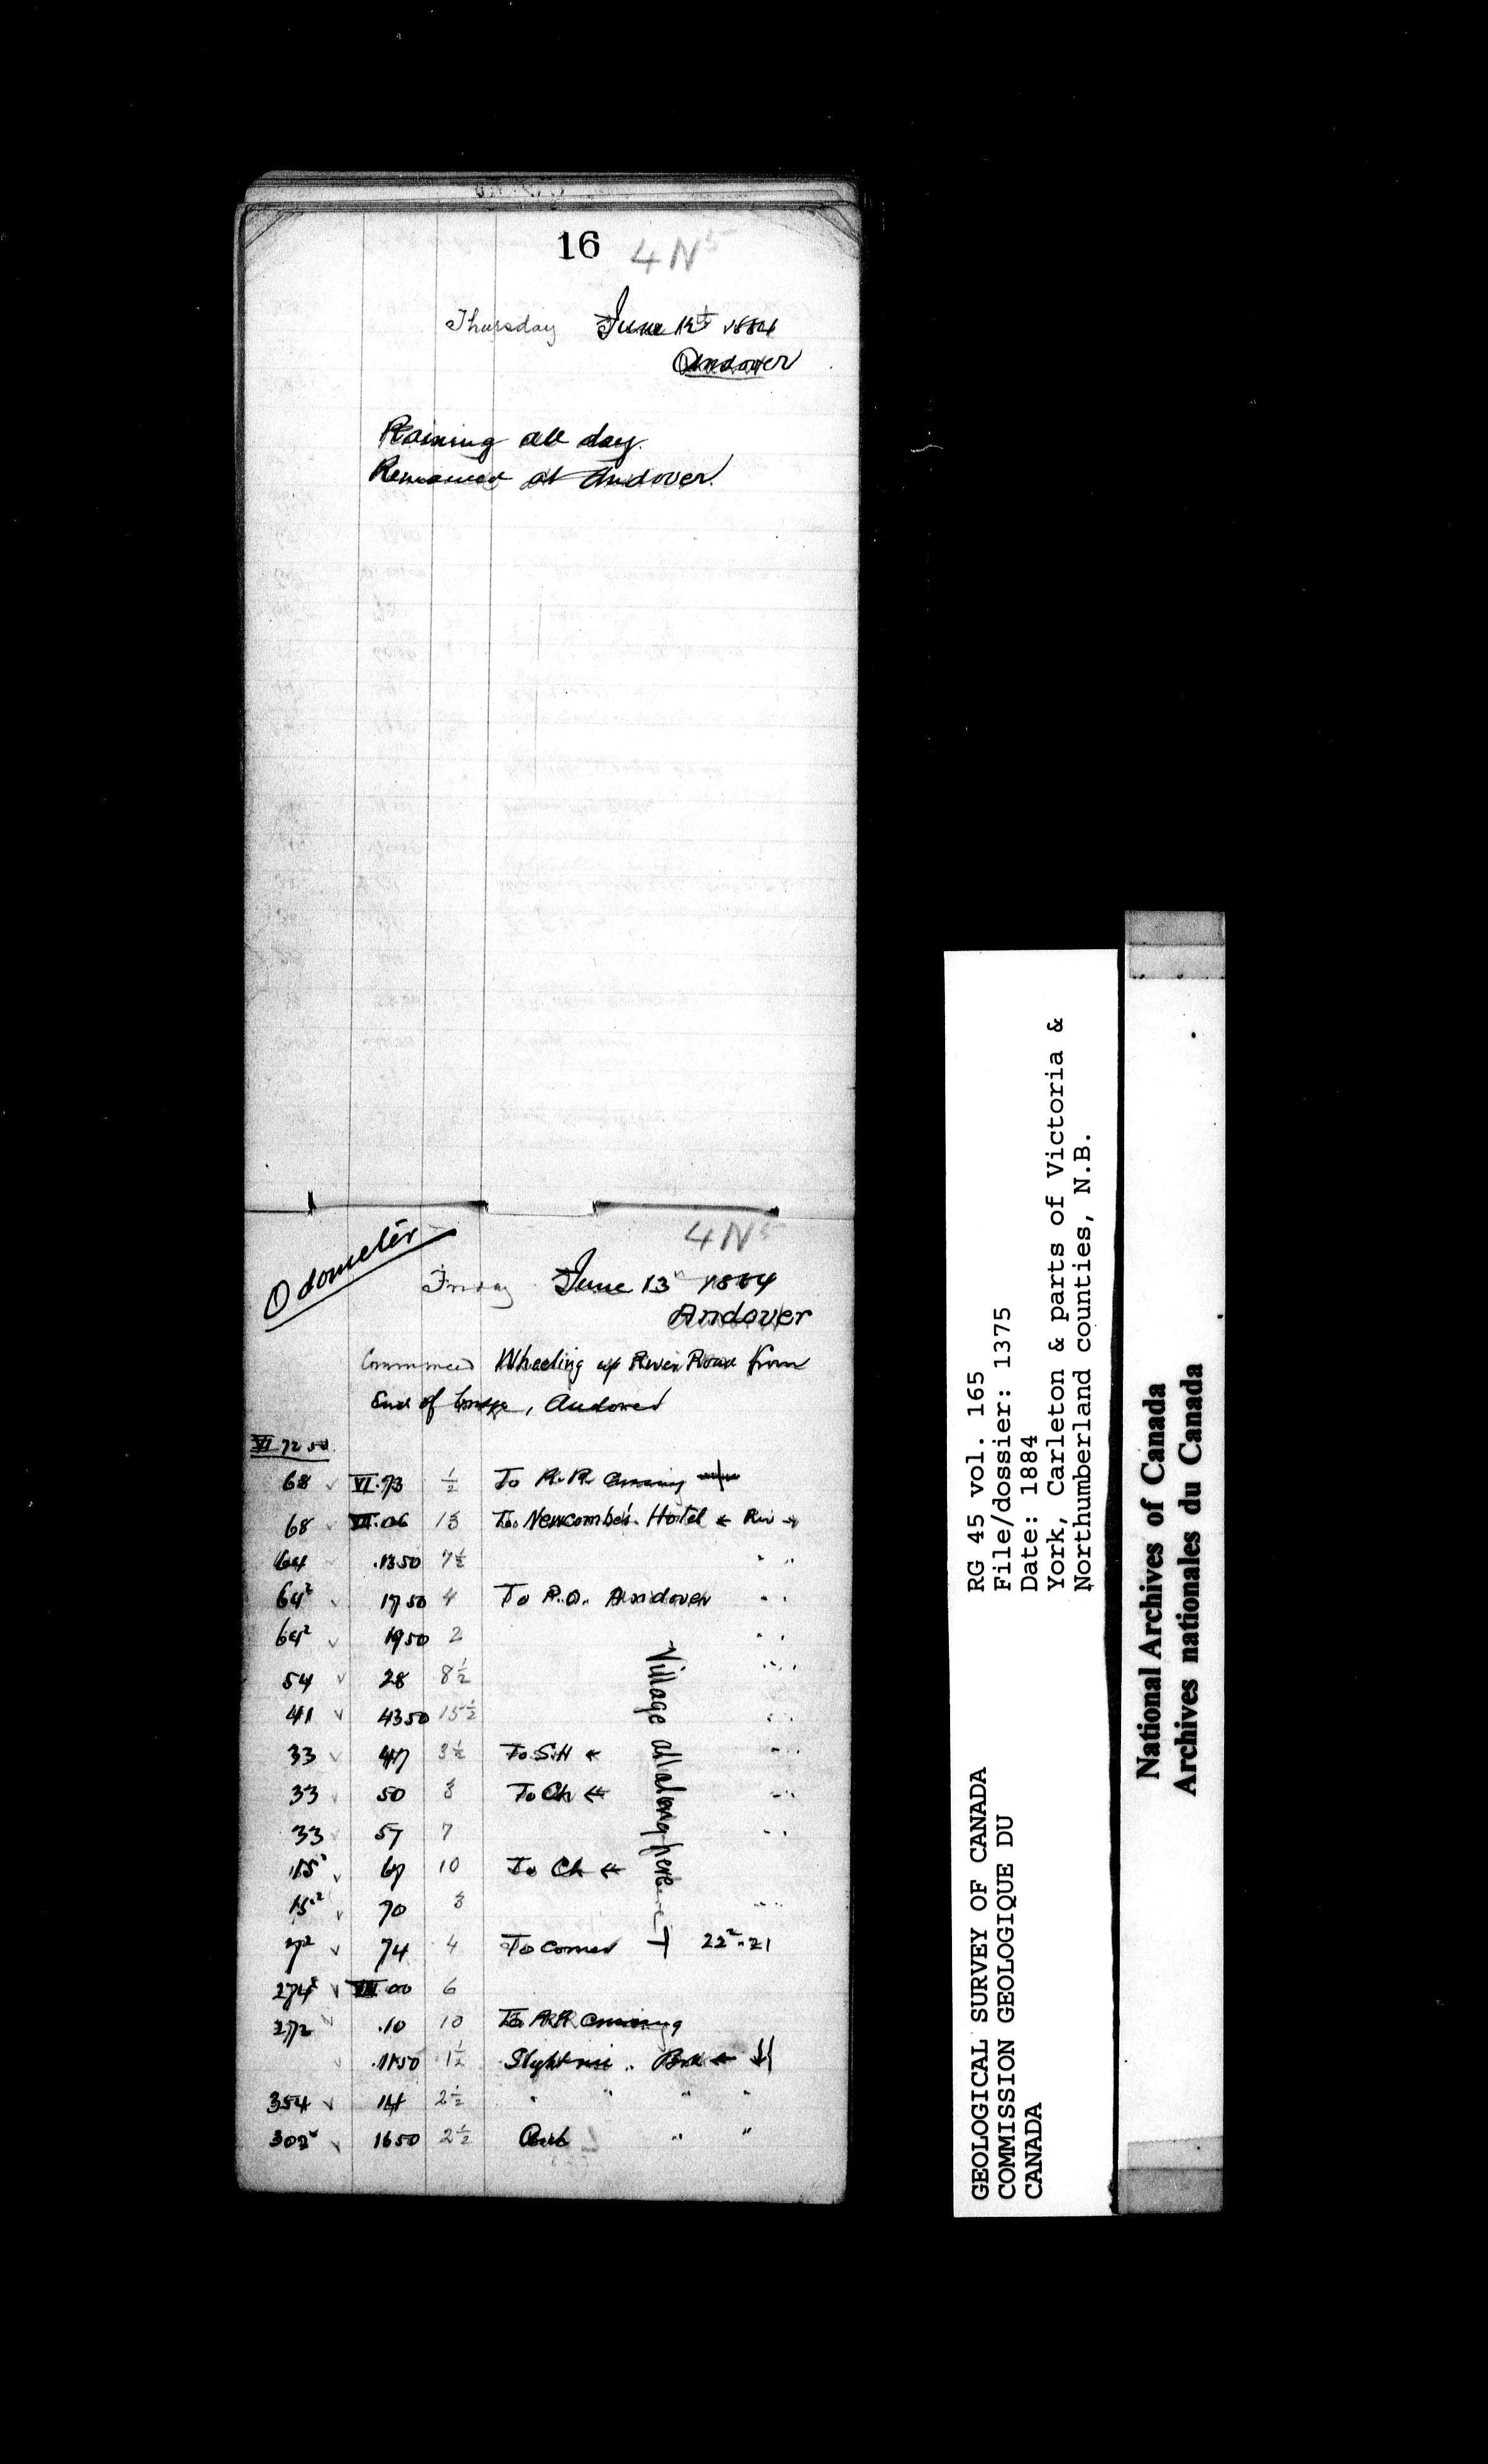 16
4N5
Thursday June 12th 1884
Andover
Raining all day.
Remained at Andover.
4N5
Odometer
Friday June 13th 1884
Andover
Commenced Wheeling up River Road from
End of bridge, Andover
VI 72 50
68 ✓ VI.73 ½ To R.R. Crossing
68 VII.06 13 To Newcombe's Hotel ← Riv →
64 .1350 7½ " "
64² ✓ 1750 4 To P.O. Andover " "
64² ✓ 1950 2 " "
54 ✓ 28 8½ " "
41 ✓ 4350 15½ " "
33 ✓ 47 3½ To S.H ← " "
33 50 3 To Ch ← " "
33 57 7 " "
15² ✓ 67 10 To Ch ←
15² ✓ 70 3 " "
7² ✓ 74 4 To corner 22²·21
Village all along here
274² ✓ VIII 00 6
272 ✓ .10 10 To RR Crossing
✓ .1150 1½ Slight rise .. Brk ←
354 ✓ 14 2½ " " " "
302² ✓ 1650 2½ " "
GEOLOGICAL SURVEY OF CANADA
COMMISSION GEOLOGIQUE DU
CANADA
RG 45 vol. 165
File/dossier: 1375
Date: 1884
York, Carleton & parts of Victoria &
Northumberland counties, N.B.
National Archives of Canada
Archives nationales du Canada